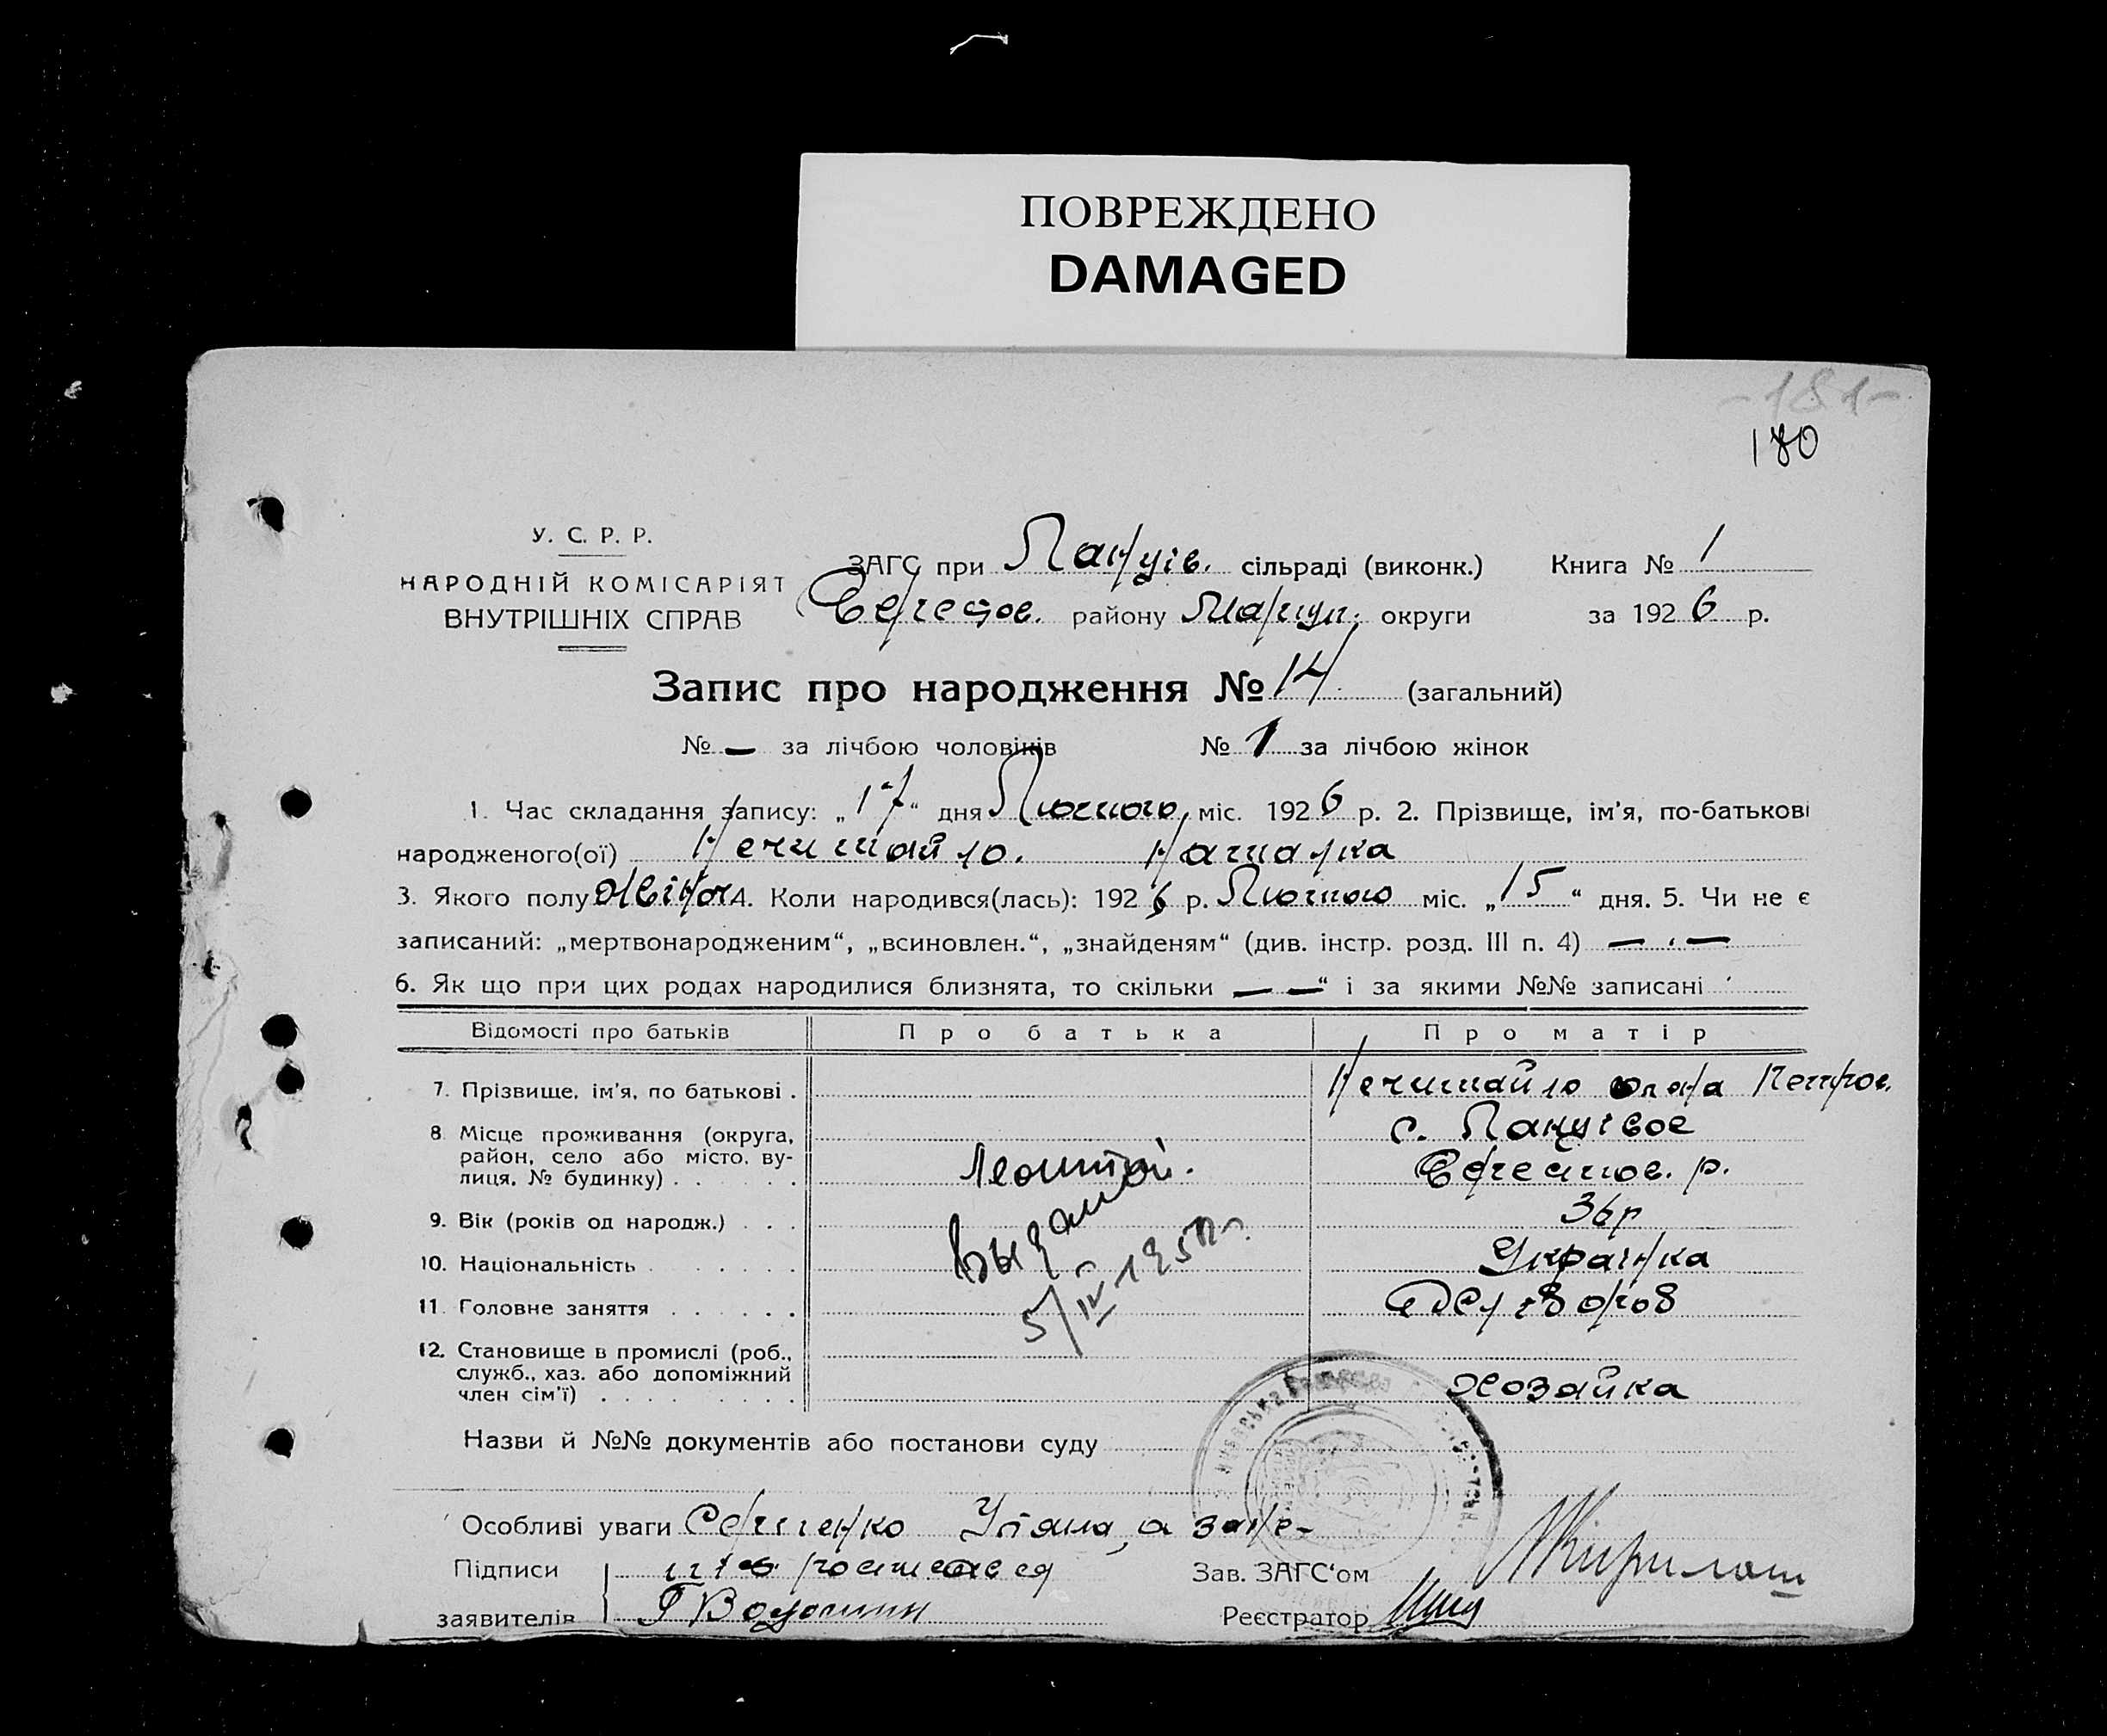 ПОВРЕЖДЕНО
DAMAGED
-181-
180
У. С. Р. Р.
НАРОДНІЙ КОМІСАРІЯТ
ВНУТРІШНІХ СПРАВ
ЗАГС при Ланців. сільраді (виконк.) Книга № 1
району Маріуп. округи за 1926 р.
Запис про народження № 14 (загальний)
№ — за лічбою чоловіків № 1 за лічбою жінок
1. Час складання запису: „17“ дня Лютого міс. 1926 р. 2. Прізвище, ім'я, по-батькові
народженого(ої) Нечитайло. Наталка
3. Якого полу дівоч. 4. Коли народився(лась): 1926 р. Лютого міс. „15“ дня. 5. Чи не є
записаний: „мертвонародженим“, „всиновлен.“, „знайденям“ (див. інстр. розд. III п. 4) — . —
6. Як що при цих родах народилися близнята, то скільки — —“ і за якими №№ записані
Відомості про батьків Про батька Про матір
7. Прізвище, ім'я, по батькові . Нечитайло Петров.
8. Місце проживання (округа, с. Ланцівое
район, село або місто, ву-
лиця, № будинку) . . . . . р.
9. Вік (років од народж.) . . . 36 р
10. Національність . . . . . . Українка
11. Головне заняття . . . . . .
12. Становище в промислі (роб.,
служб., хаз. або допоміжний
член сім'ї) . . . . . . . . хозайка
выдан
5/IV 195
Назви й №№ документів або постанови суду
Особливі уваги Сергієнко Уляна, а за не-
Підписи росписався
заявителів Г Волошин
Зав. ЗАГС'ом
Реєстратор